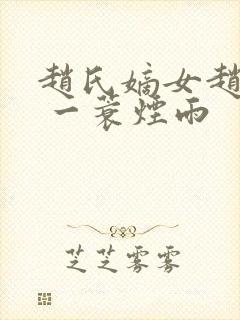 趙氏嫡女趙
一蓑煙雨
芝芝雾雾